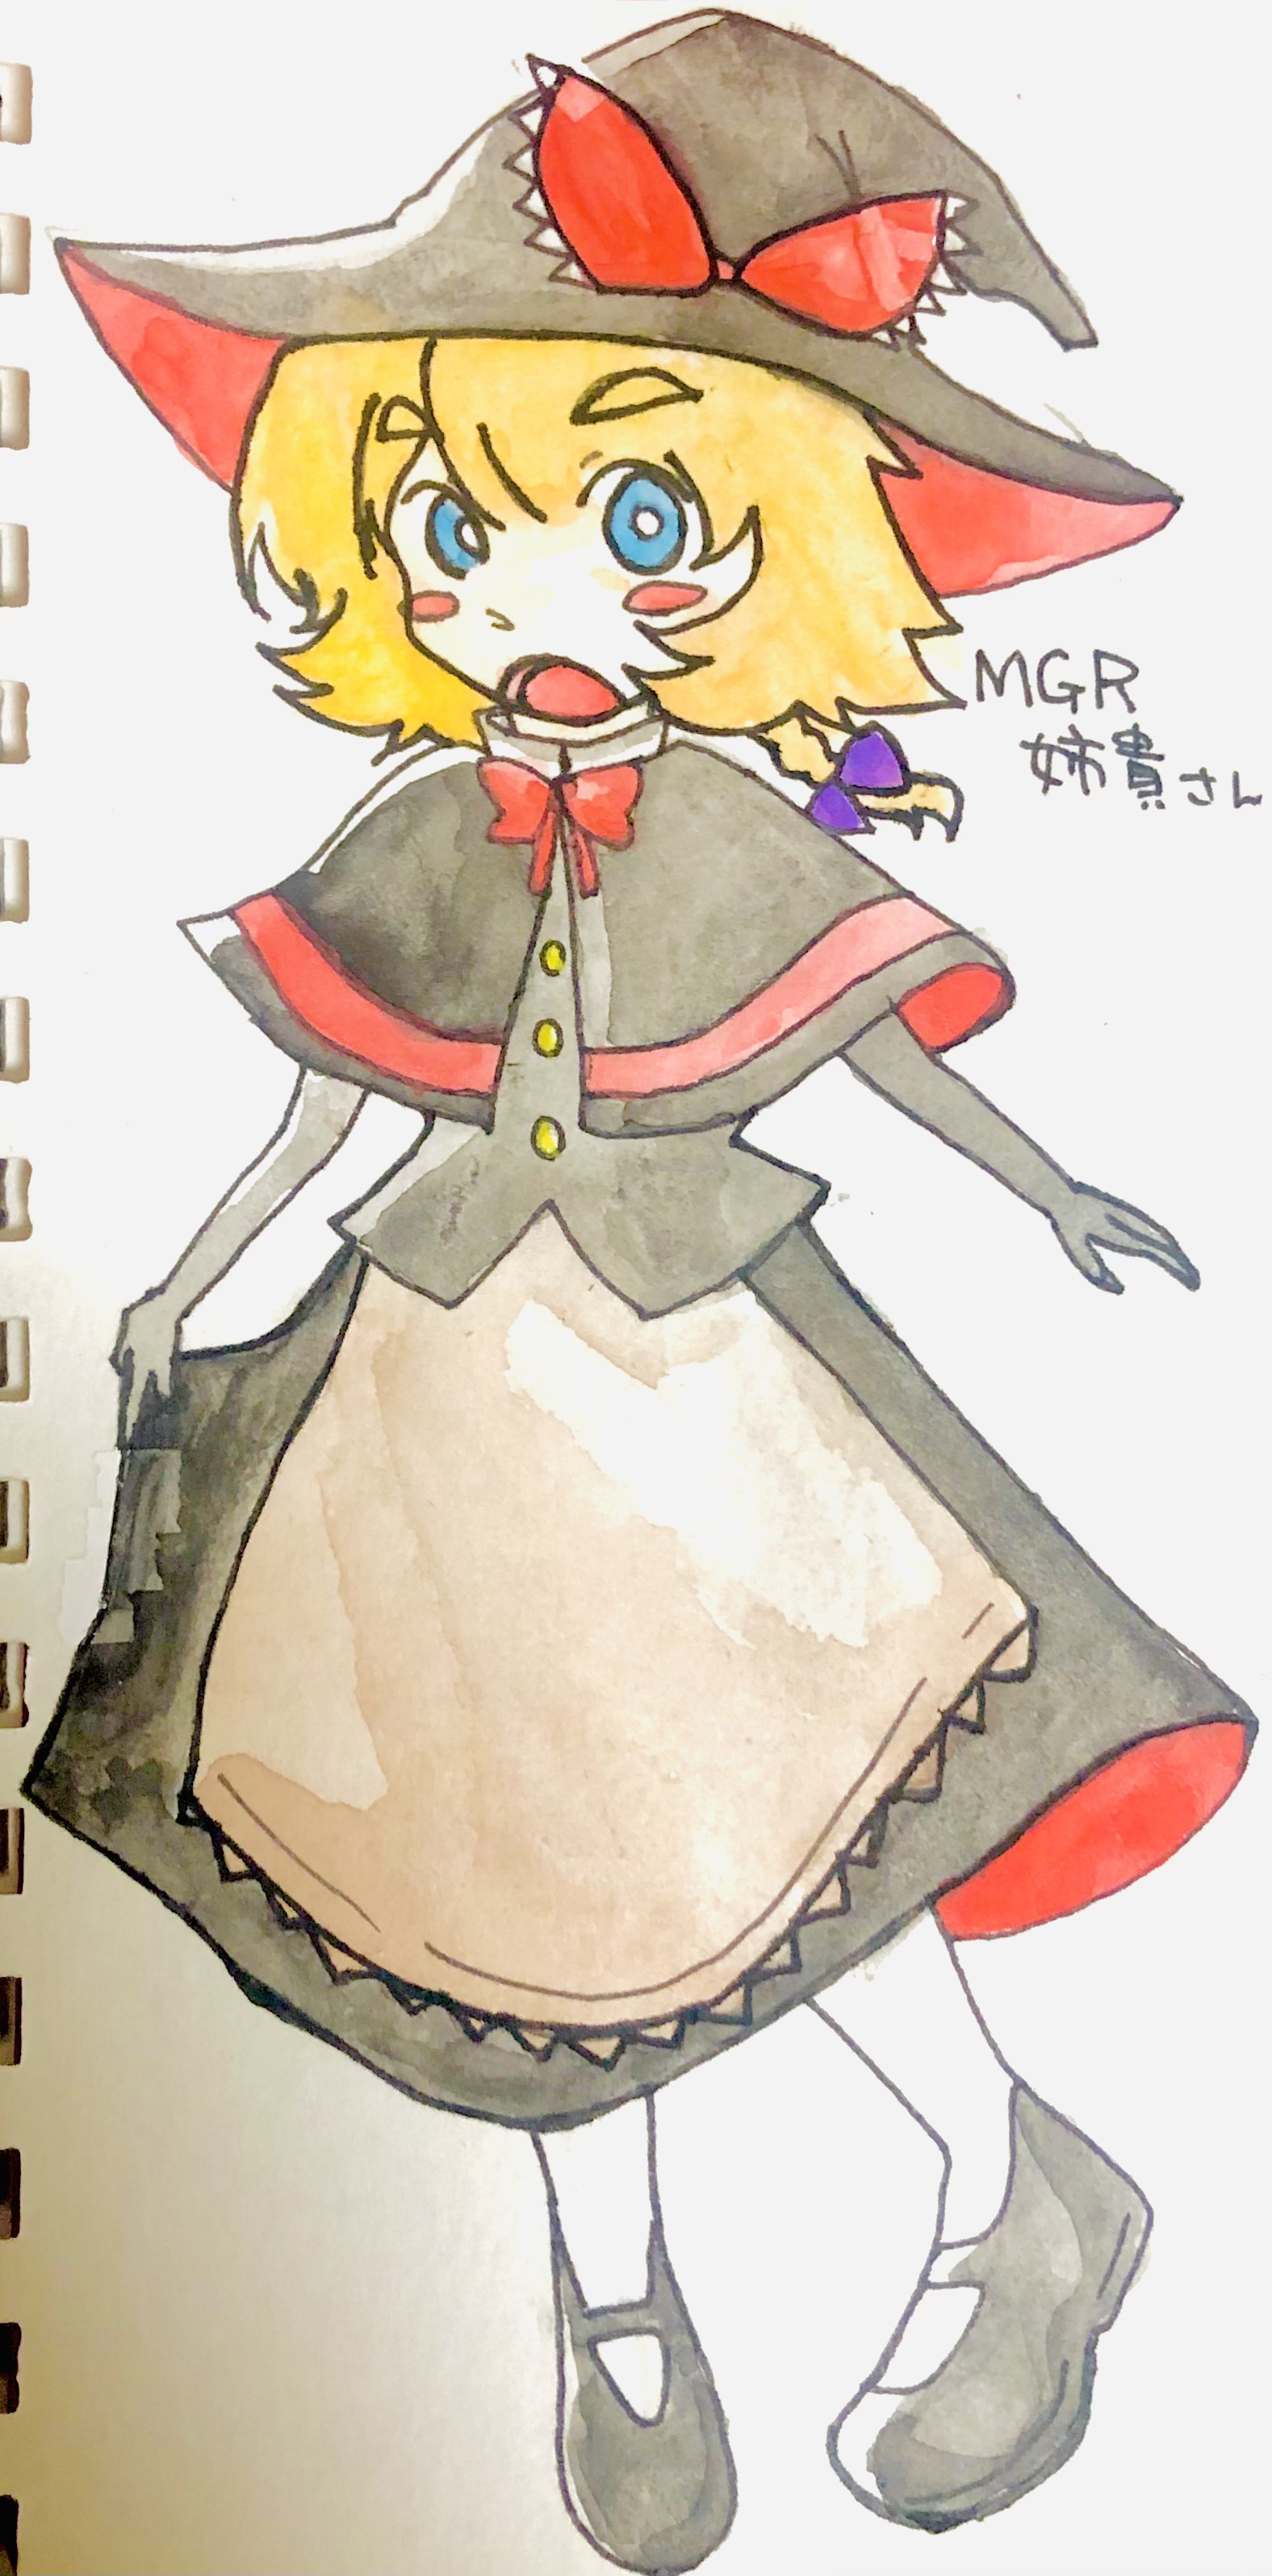 MGR
姉貴さん